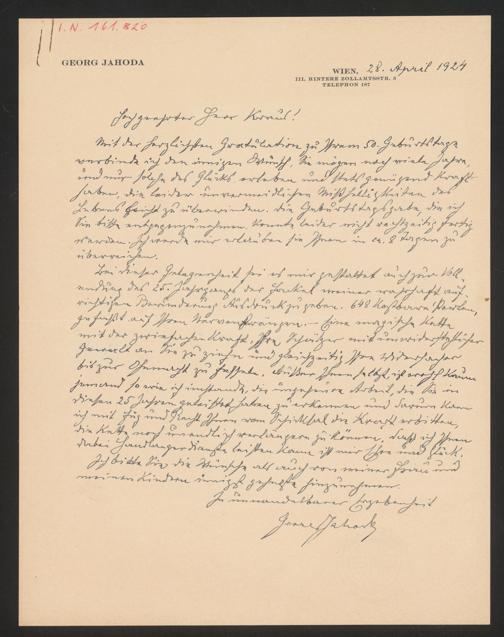 I. N. 161.820
GEORG JAHODA
WIEN, 28. April 1924
III. HINTERE ZOLLAMTSSTR. 3
TELEPHON 187
Hochgeehrter Herr Kraus!
Mit der herzlichsten Gratulation zu Ihrem 50. Geburtstage
verbinde ich den innigen Wunsch, Sie mögen noch viele Jahre,
und nur solche des Glücks erleben und stets genügend Kraft
haben, die leider unvermeidlichen Mißhelligkeiten des
Lebens leicht zu überwinden. Die Geburtstagsgabe, die ich
Sie bitte entgegenzunehmen, konnte leider nicht rechtzeitig fertig
werden. Ich werde mir erlauben sie Ihnen in ca. 8 Tagen zu
überreichen.
Bei dieser Gelegenheit sei es mir gestattet auch zur Voll-
endung des 25. Jahrganges der Fackel meiner wahrhaft auf-
richtigen Bewunderung Ausdruck zu geben. 648 kostbare Perlen,
gefaßt auf Ihren Nervensträngen. – Eine magische Kette
mit der zwiefachen Kraft, Ihre Schätzer mit unwiderstehlicher
Gewalt an Sie zu ziehen und gleichzeitig Ihre Widersacher
bis zur Ohnmacht zu fesseln. Außer Ihnen selbst, ist wohl kaum
jemand so wie ich imstande, die ungeheure Arbeit, die Sie in
diesen 25 Jahren geleistet haben zu erkennen und darum kann
ich mit Fug und Recht Ihnen vom Schicksal die Kraft erbitten,
die Kette noch unendlich verlängern zu können. Daß ich Ihnen
dabei Handlangerdienste leisten kann ist mir Ehre und Glück.
Ich bitte Sie die Wünsche als auch von meiner Frau und
meinen Kindern innigst gehegte hinzunehmen.
In unwandelbarer Ergebenheit
Georg Jahoda